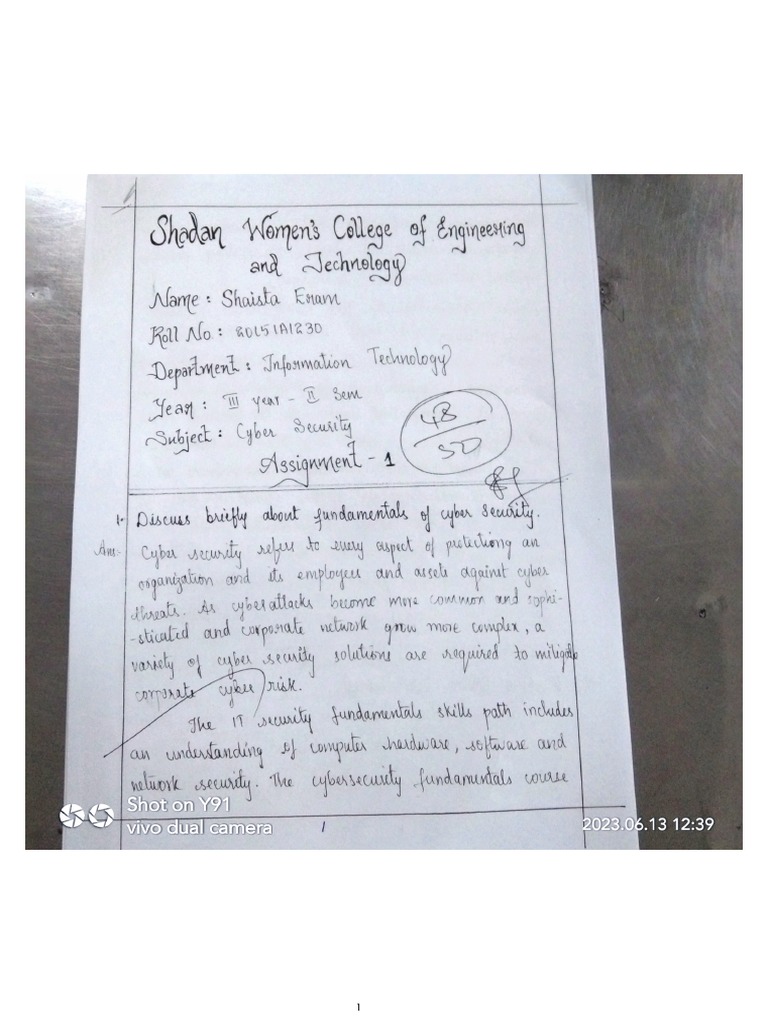 Shadan Women's College of Engineering
and Technology
Name : Shaista Eram
Roll No. : 20151A1230
Department : Information Technology
Year : III year - II Sem
Subject : Cyber Security
48
50
Assignment - 1
1. Discuss briefly about fundamentals of cyber security.
Ans:- Cyber security refers to every aspect of protectiong an
organization and its employees and assets against cyber
threats. As cyberattacks become more common and sophi-
-sticated and corporate network grow more complex, a
variety of cyber security solutions are required to mitigate
corporate cyber risk.
The IT security fundamentals skills path includes
an understanding of computer hardware, software and
network security. The cybersecurity fundamentals course
Shot on Y91
vivo dual camera
1
2023.06.13 12:39
1